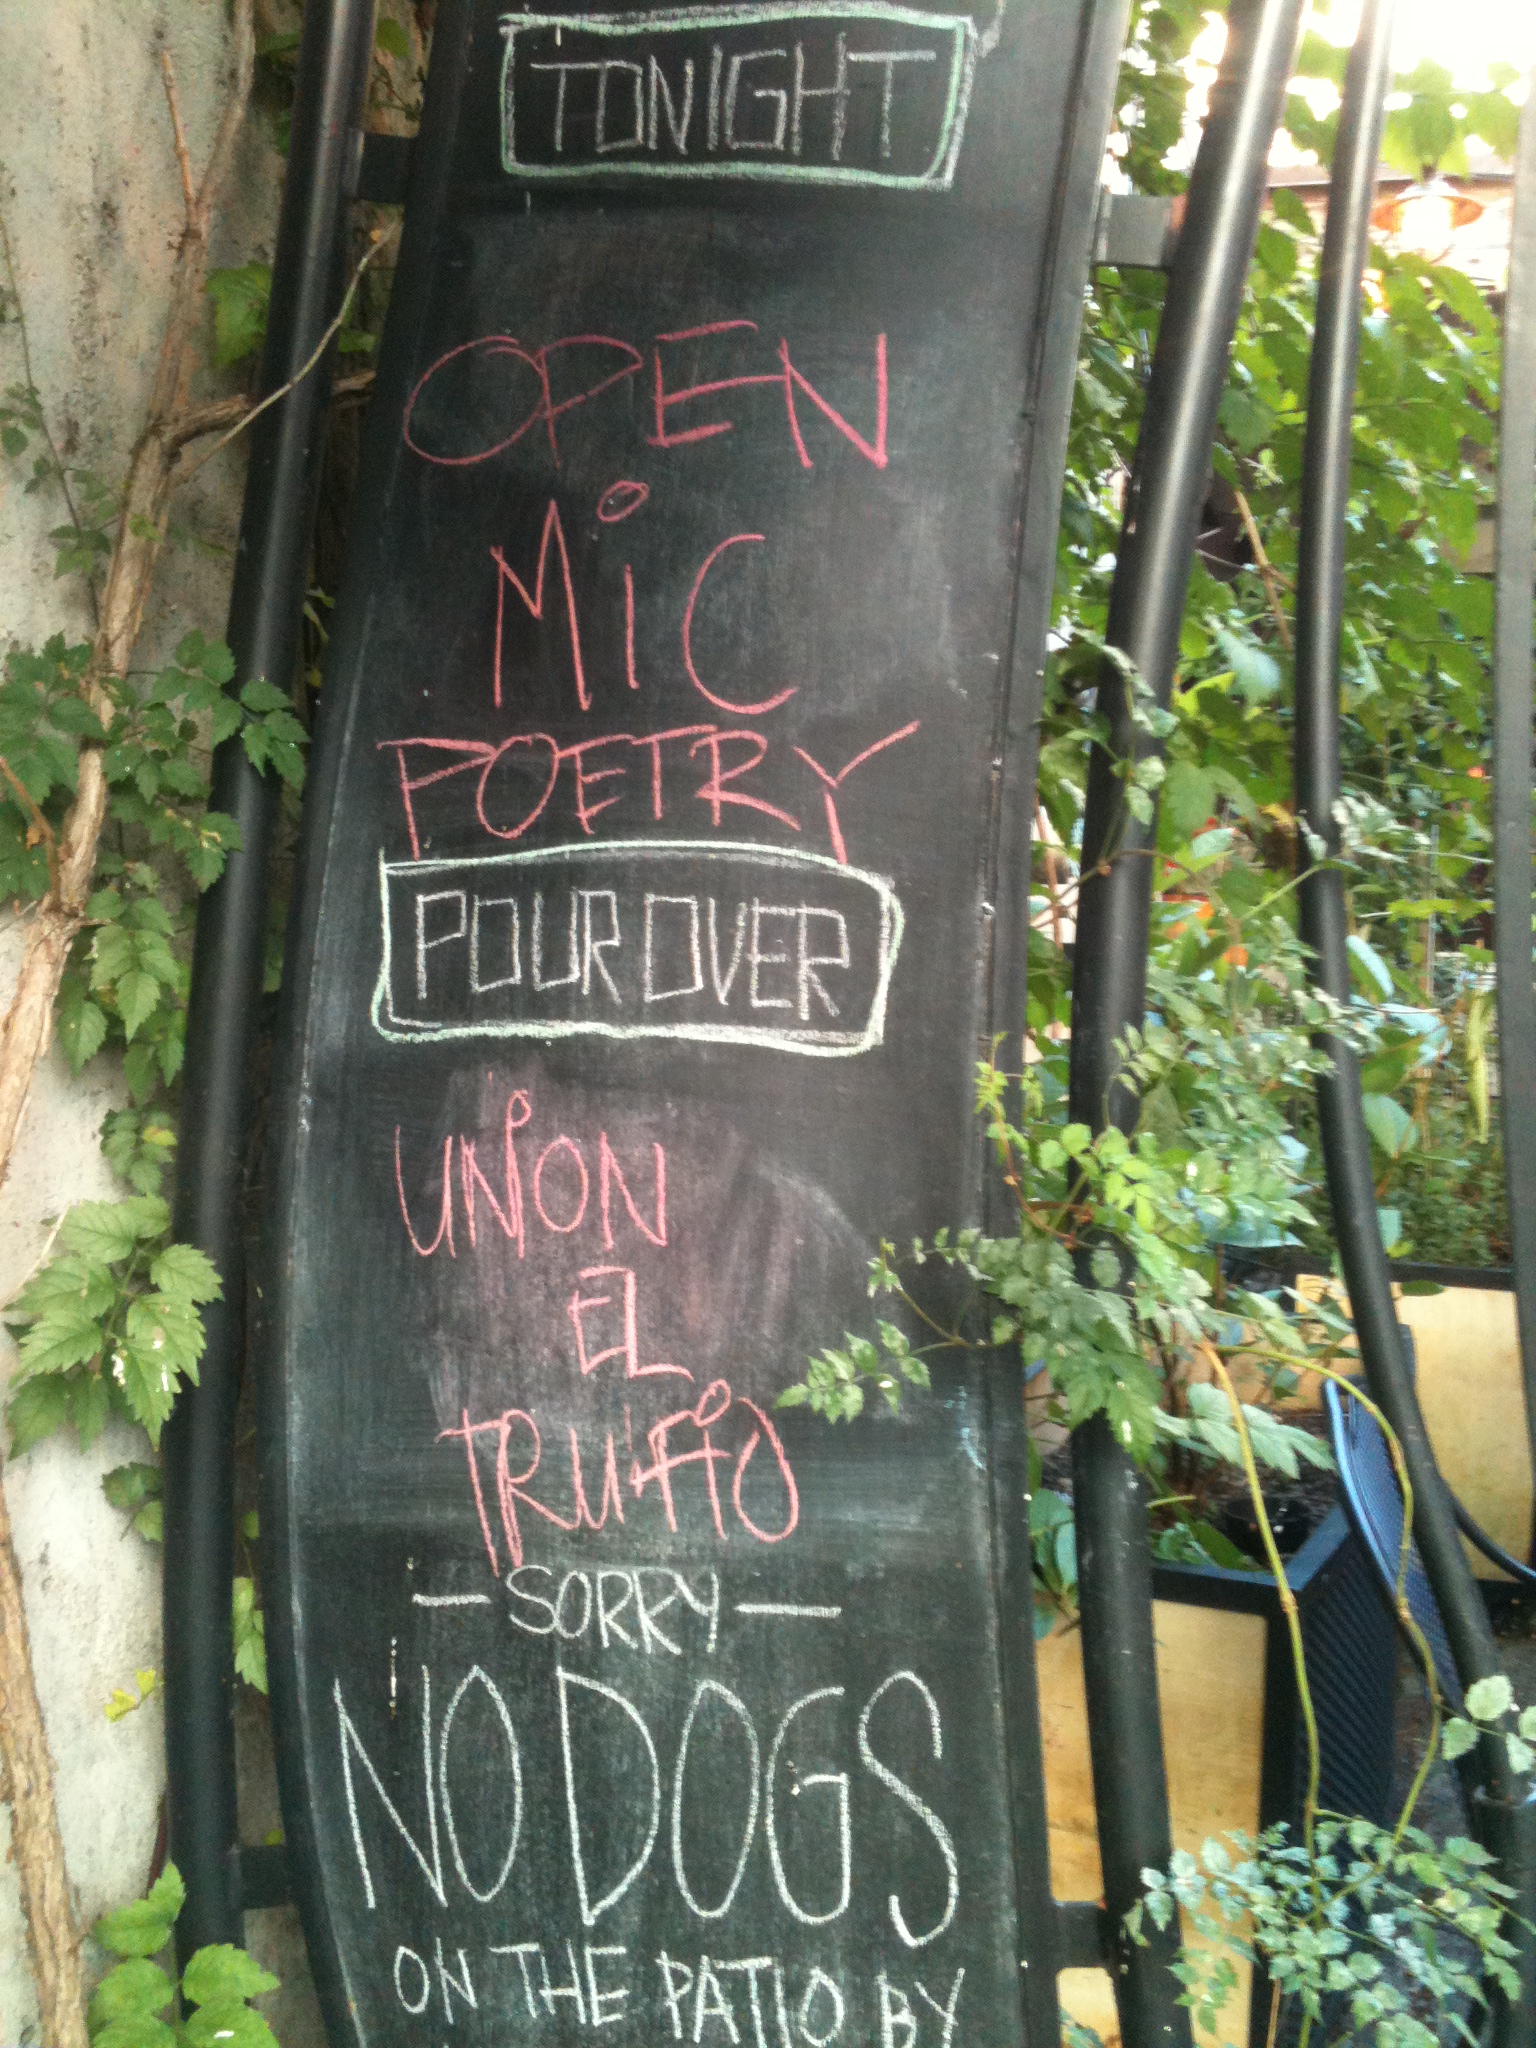 TONIGHT
OPEN
MiC
POETRY
POUR OVER
UNiON
EL
TRiUNFO
SORRY
NO DOGS
ON THE PATIO BY